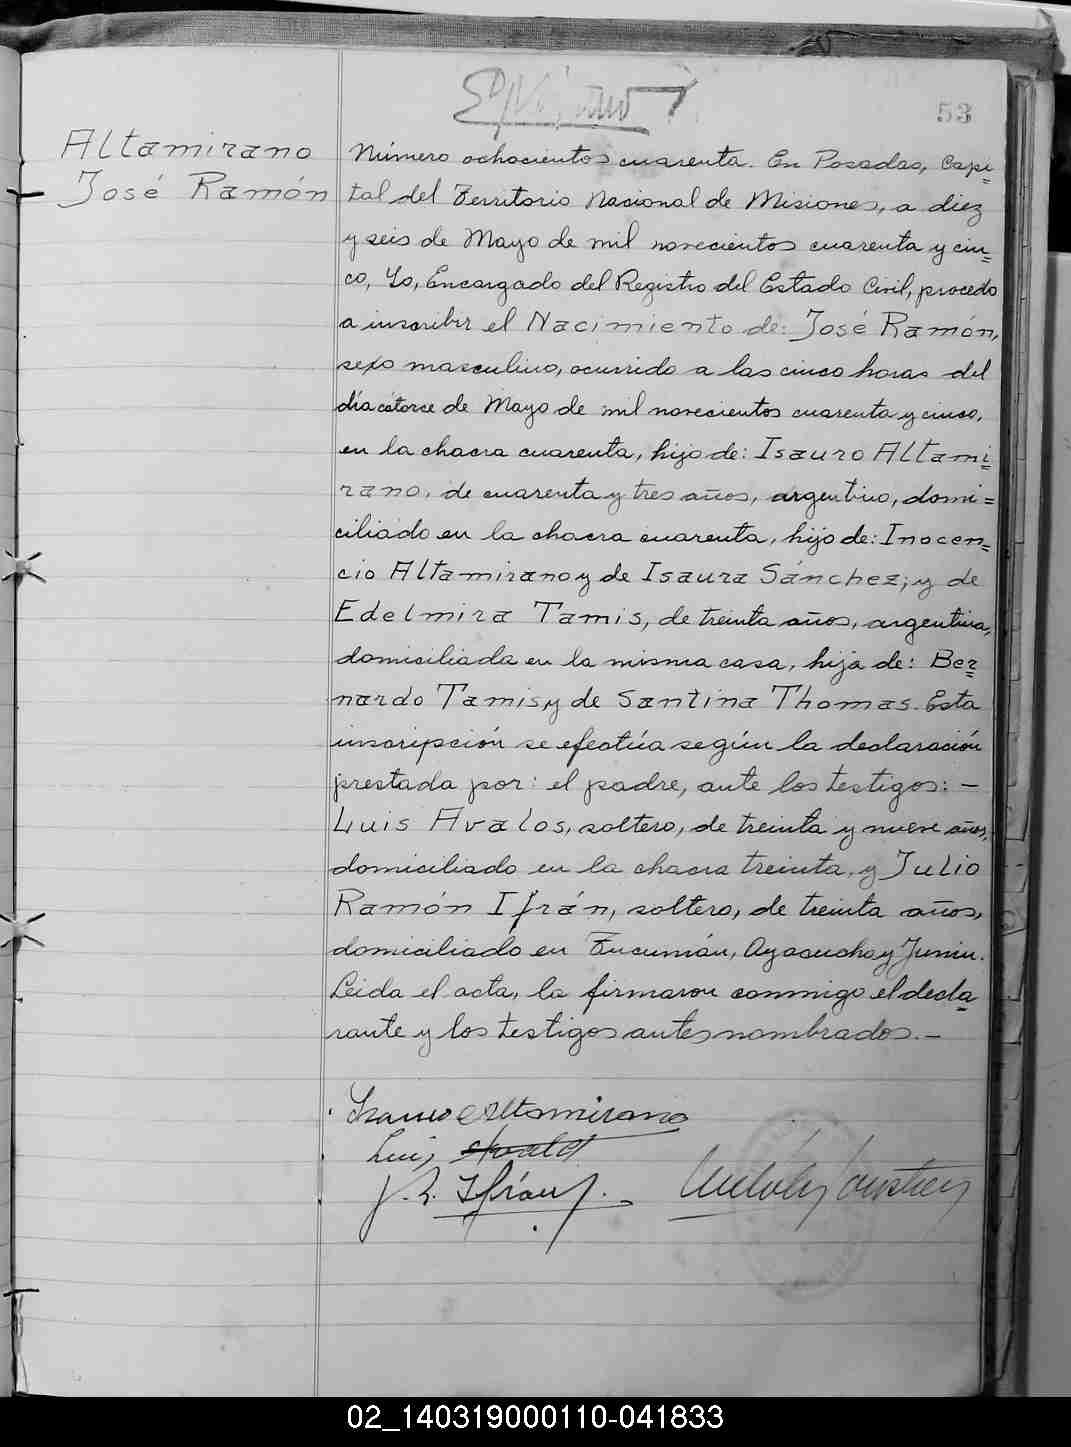 53
Altamirano
José Ramón
Número ochocientos cuarenta. En Posadas, Capi=
tal del Territorio Nacional de Misiones, a diez
y seis de Mayo de mil novecientos cuarenta y cin=
co, Yo, Encargado del Registro del Estado Civil, procedo
a inscribir el Nacimiento de: José Ramón,
sexo masculino, ocurrido a las cinco horas del
día catorce de Mayo de mil novecientos cuarenta y cinco,
en la chacra cuarenta, hijo de: Isauro Altami=
rano, de cuarenta y tres años, argentino, domi=
ciliado en la chacra cuarenta, hijo de: Inocen=
cio Altamirano y de Isaura Sánchez; y de
Edelmira Tamis, de treinta años, argentina,
domiciliada en la misma casa, hija de: Ber=
nardo Tamis, y de Santina Thomas. Esta
inscripción se efectúa según la declaración
prestada por: el padre, ante los testigos: —
Luis Avalos, soltero, de treinta y nueve años,
domiciliado en la chacra treinta, y Julio
Ramón Ifrán, soltero, de treinta años,
domiciliado en Tucumán, Ayacucho y Junin.
Leida el acta, la firmaron conmigo el decla=
rante y los testigos antes nombrados.—
Isauro Altamirano
Luis
J. R. Ifrán
02_140319000110-041833